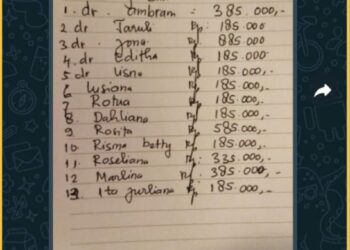 1. dr. ambram = 385.000,-
2 dr Taruli Rp. 185.000
3 dr. Jona Rp: 885.000
4. dr editha Rp. 185.000
5 dr lisna Rp. 185.000,-
6 Lusiana Rp. 185.000,-
7 Rotua Rp. 185.000,-
8 Dahliana Rp. 185.000,-
9 Rosita Rp. 585.000,-
10. Risma betty Rp. 185.000,-
11. Roseliana Rp. 335.000,-
12 Marlina Rp. 385.000,-
13. Ito Jurliana Rp. 185.000,-